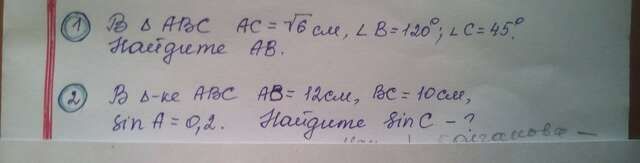 ① В △ ABC AC = √6 см, ∠ B = 120°; ∠ C = 45°.
Найдите AB.
② В △-ке ABC AB = 12 см, BC = 10 см,
sin A = 0,2. Найдите sin C - ?